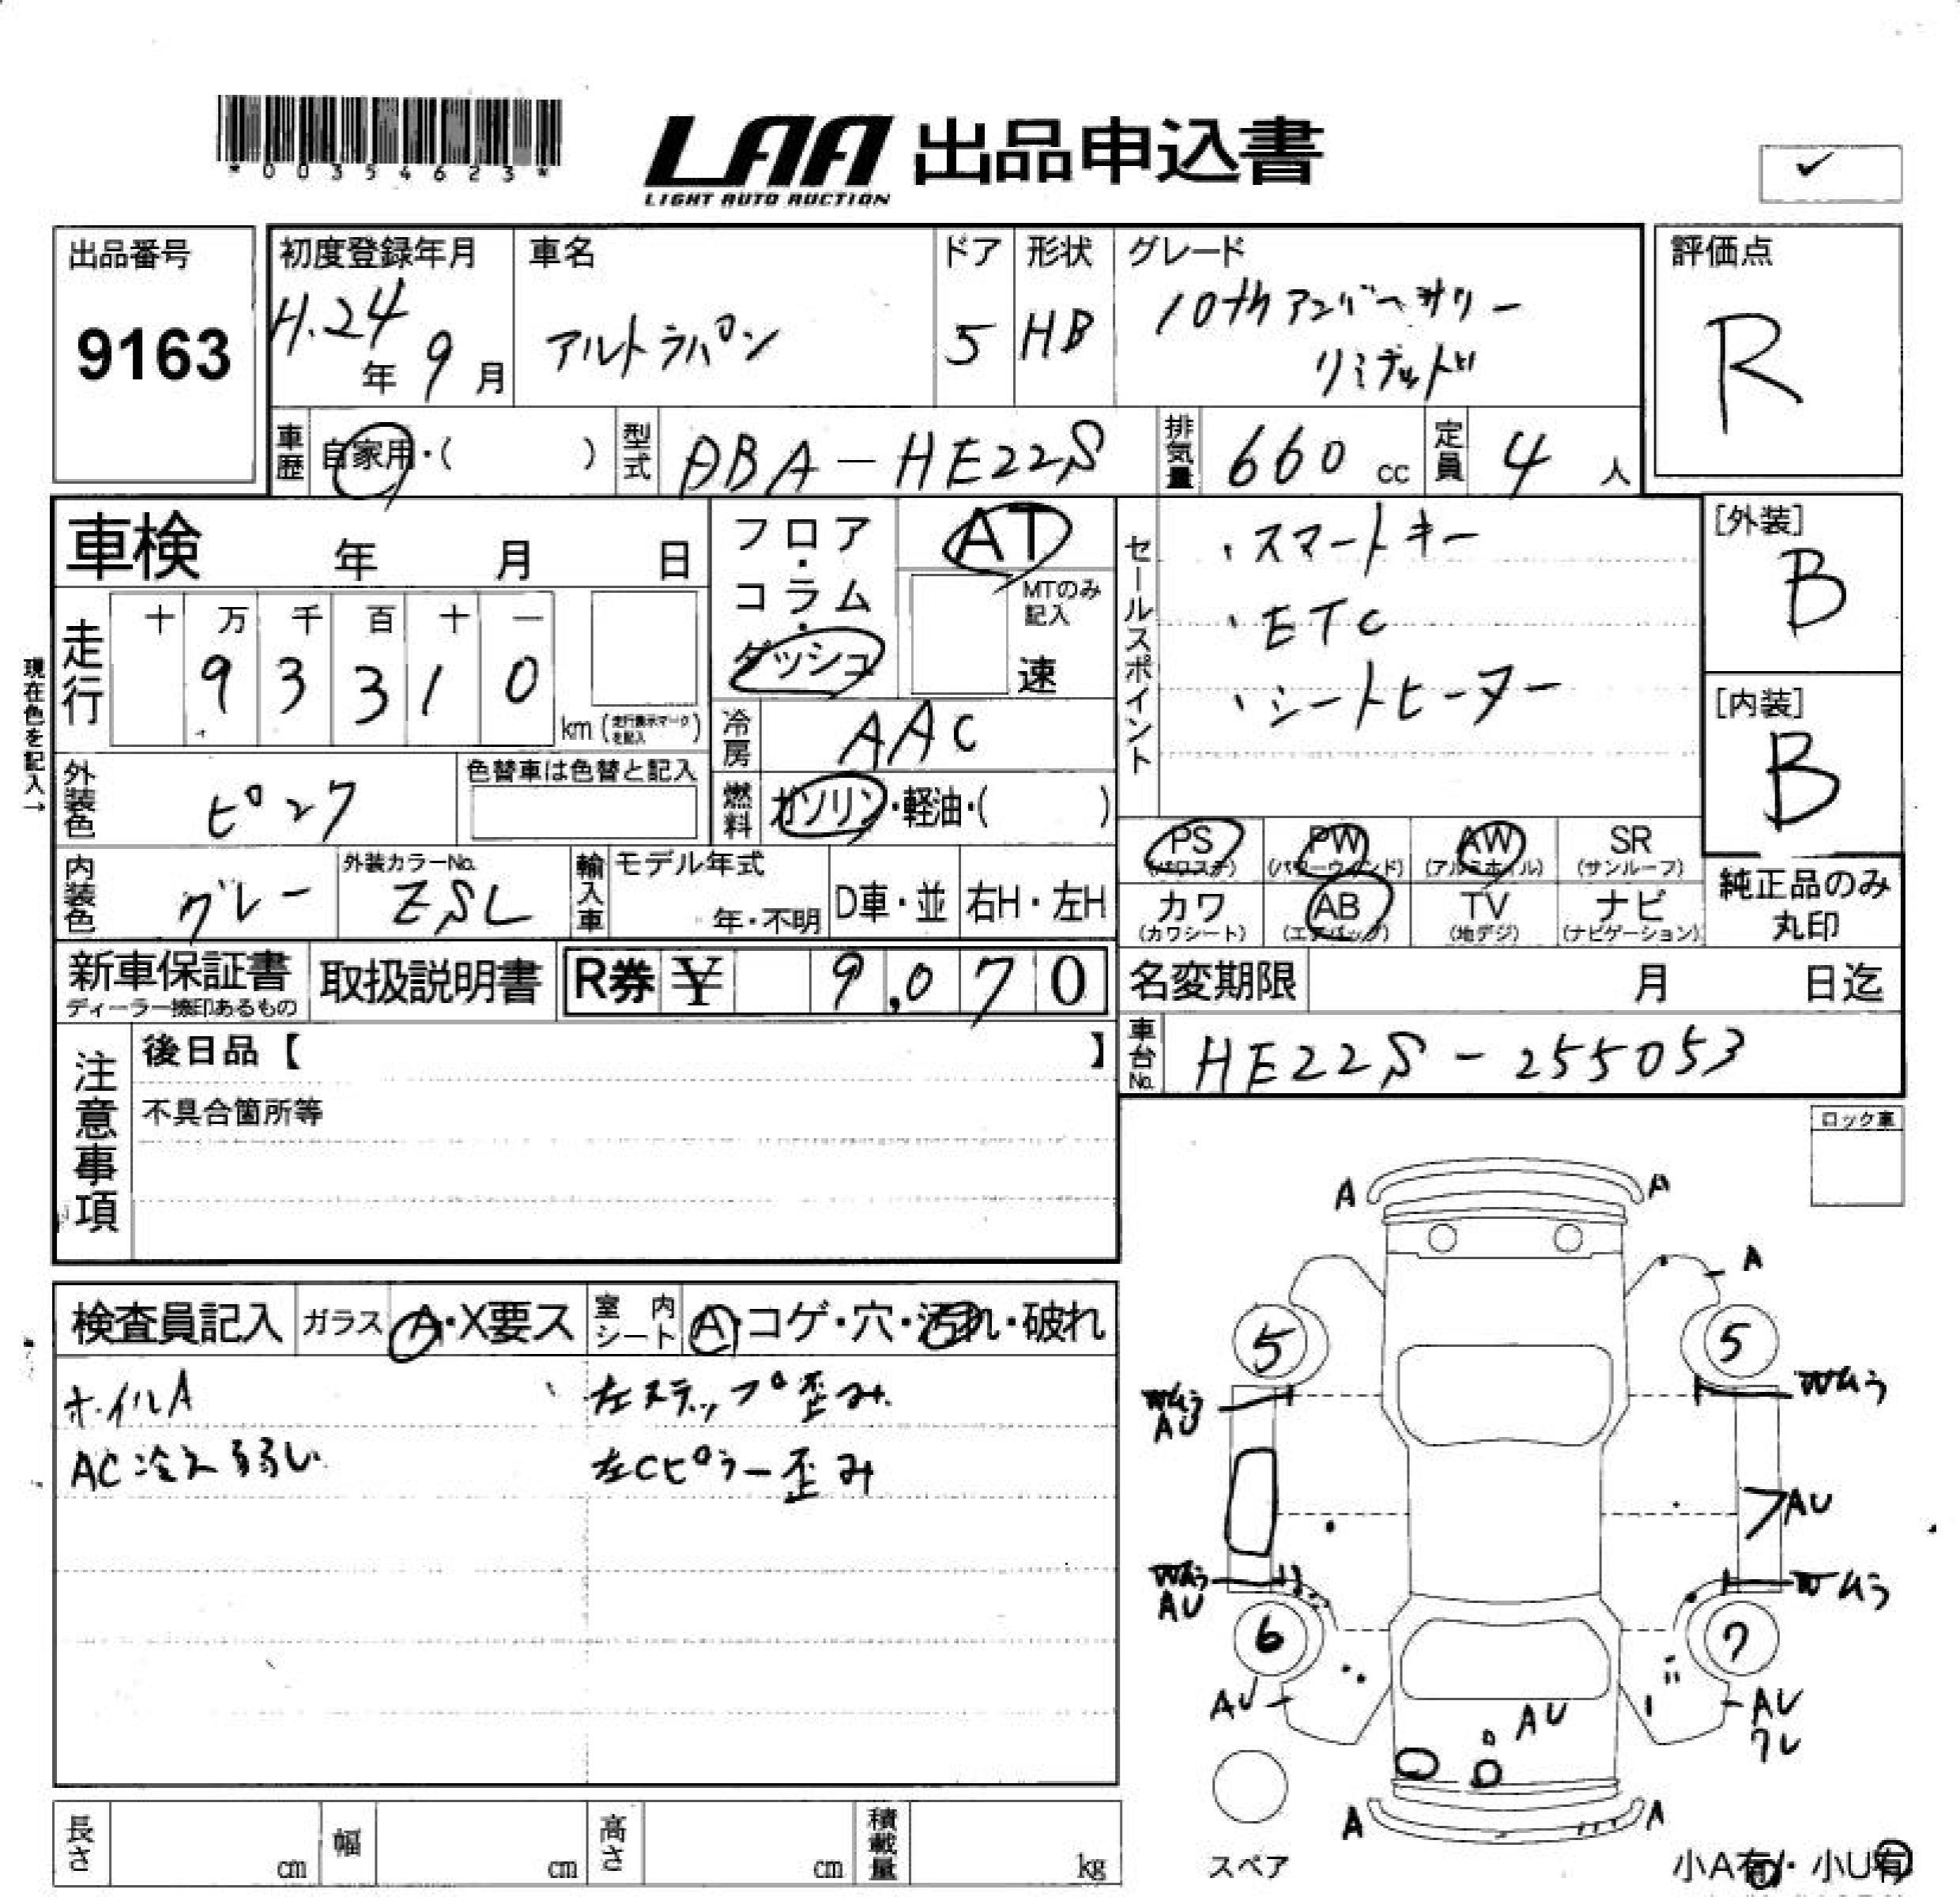 *00354623*
LAA 出品申込書
LIGHT AUTO AUCTION
✓
出品番号
9163
初度登録年月
H.24年 9月
車名
アルトラパン
ドア
5
形状
HB
グレード
10thアニバーサリー
リミテッド
評価点
R
車歴 自家用・( )
型式 DBA-HE22S
排気量 660 cc
定員 4 人
車検 年 月 日
フロア・コラム・ダッシュ
AT
MTのみ記入
速
セールスポイント
・スマートキー
・ETC
・シートヒーター
[外装]
B
[内装]
B
現在色を記入→
走行 十 万 千 百 十 一
9 3 3 1 0
km (走行表示マークを記入)
冷房 AAC
燃料 ガソリン・軽油・( )
外装色 ピンク
色替車は色替と記入
内装色 グレー
外装カラーNo.
ZSL
輸入車 モデル年式
年・不明
D車・並
右H・左H
PS (パワステ)
PW (パワーウィンド)
AW (アルミホイル)
SR (サンルーフ)
カワ (カワシート)
AB (エアバッグ)
TV (地デジ)
ナビ (ナビゲーション)
純正品のみ
丸印
新車保証書
ディーラー捺印あるもの
取扱説明書
R券 ¥ 9,070
名変期限 月 日迄
車台No. HE22S-255053
注意事項
後日品【 】
不具合箇所等
ロック車
検査員記入
ガラス A・X要ス
室内シート A・コゲ・穴・汚れ・破れ
ホイルA
左ステップ歪み
AC冷え弱い
左Cピラー歪み
A A
A
5 5
Wムラ
AU
Wムラ
AU
Wムラ
AU
Wムラ
6 7
AU
AU
AU
クレ
A A
スペア
小A有・小U有
長さ cm
幅 cm
高さ cm
積載量 kg